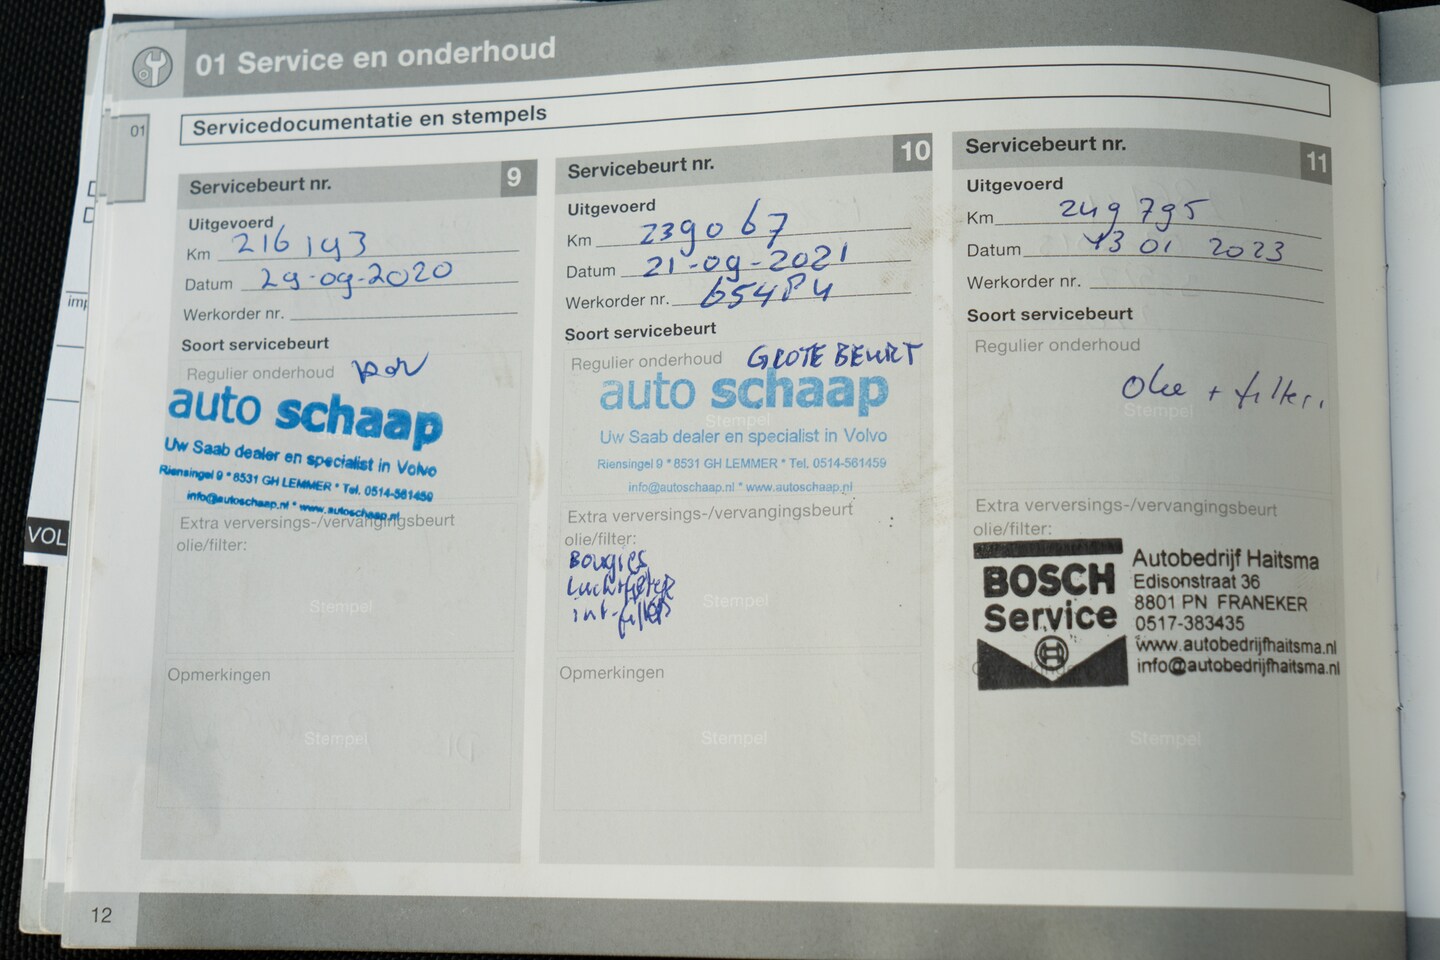 01 Service en onderhoud
01
Servicedocumentatie en stempels
Servicebeurt nr. 9
Uitgevoerd
Km 216 143
Datum 29-09-2020
Werkorder nr.
Soort servicebeurt
Regulier onderhoud
auto schaap
Uw Saab dealer en specialist in Volvo
Riensingel 9 * 8531 GH LEMMER * Tel. 0514-561459
info@autoschaap.nl * www.autoschaap.nl
Extra verversings-/vervangingsbeurt
olie/filter:
Stempel
Opmerkingen
Stempel
Servicebeurt nr. 10
Uitgevoerd
Km 239067
Datum 21-09-2021
Werkorder nr. 654P4
Soort servicebeurt
Regulier onderhoud GROTE BEURT
auto schaap
Stempel
Uw Saab dealer en specialist in Volvo
Riensingel 9 * 8531 GH LEMMER * Tel. 0514-561459
info@autoschaap.nl * www.autoschaap.nl
Extra verversings-/vervangingsbeurt
olie/filter:
Bougies
Luchtfilter
int-filter
Stempel
Opmerkingen
Stempel
Servicebeurt nr. 11
Uitgevoerd
Km 249 795
Datum 13 01 2023
Werkorder nr.
Soort servicebeurt
Regulier onderhoud
Olie + filter.
Stempel
Extra verversings-/vervangingsbeurt
olie/filter:
BOSCH
Service
Autobedrijf Haitsma
Edisonstraat 36
8801 PN FRANEKER
0517-383435
www.autobedrijfhaitsma.nl
info@autobedrijfhaitsma.nl
Stempel
12
VOL